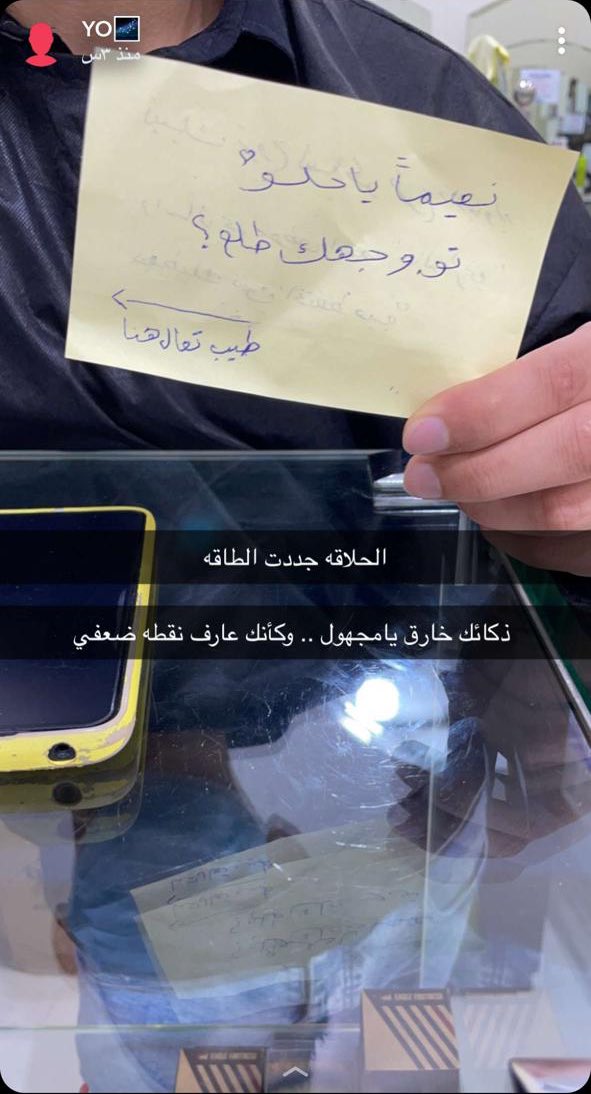 YO
منذ ٣س
نعيماً ياحلو
تو وجهك طلع؟
طيب تعال هنا
الحلاقه جددت الطاقه
ذكائك خارق يامجهول .. وكأنك عارف نقطه ضعفي